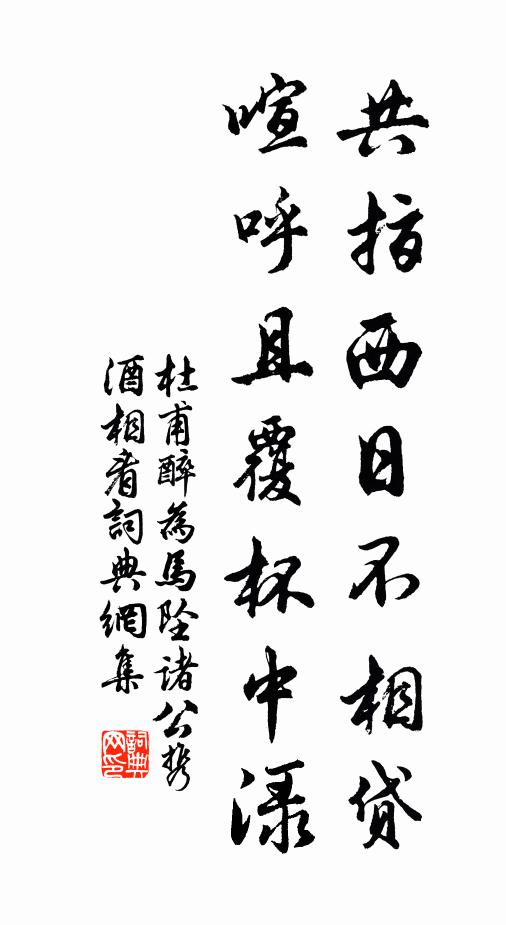 共指西日不相貸
喧呼且覆杯中渌
杜甫醉為馬墜諸公携
酒相看詞典網集
詞典
网印